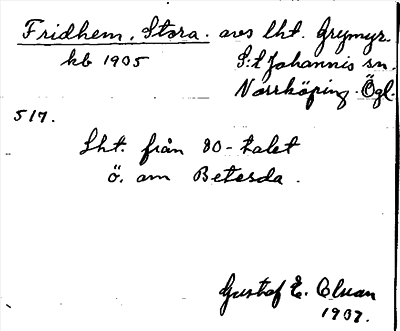 Fridhem, Stora. avs lht. Grymyr.
kb 1905 S:t Johannis sn.
Norrköping. Ögl.
517.
Lht. från 80-talet
ö. om Betesda.
Gustaf E. Clvan
1937.